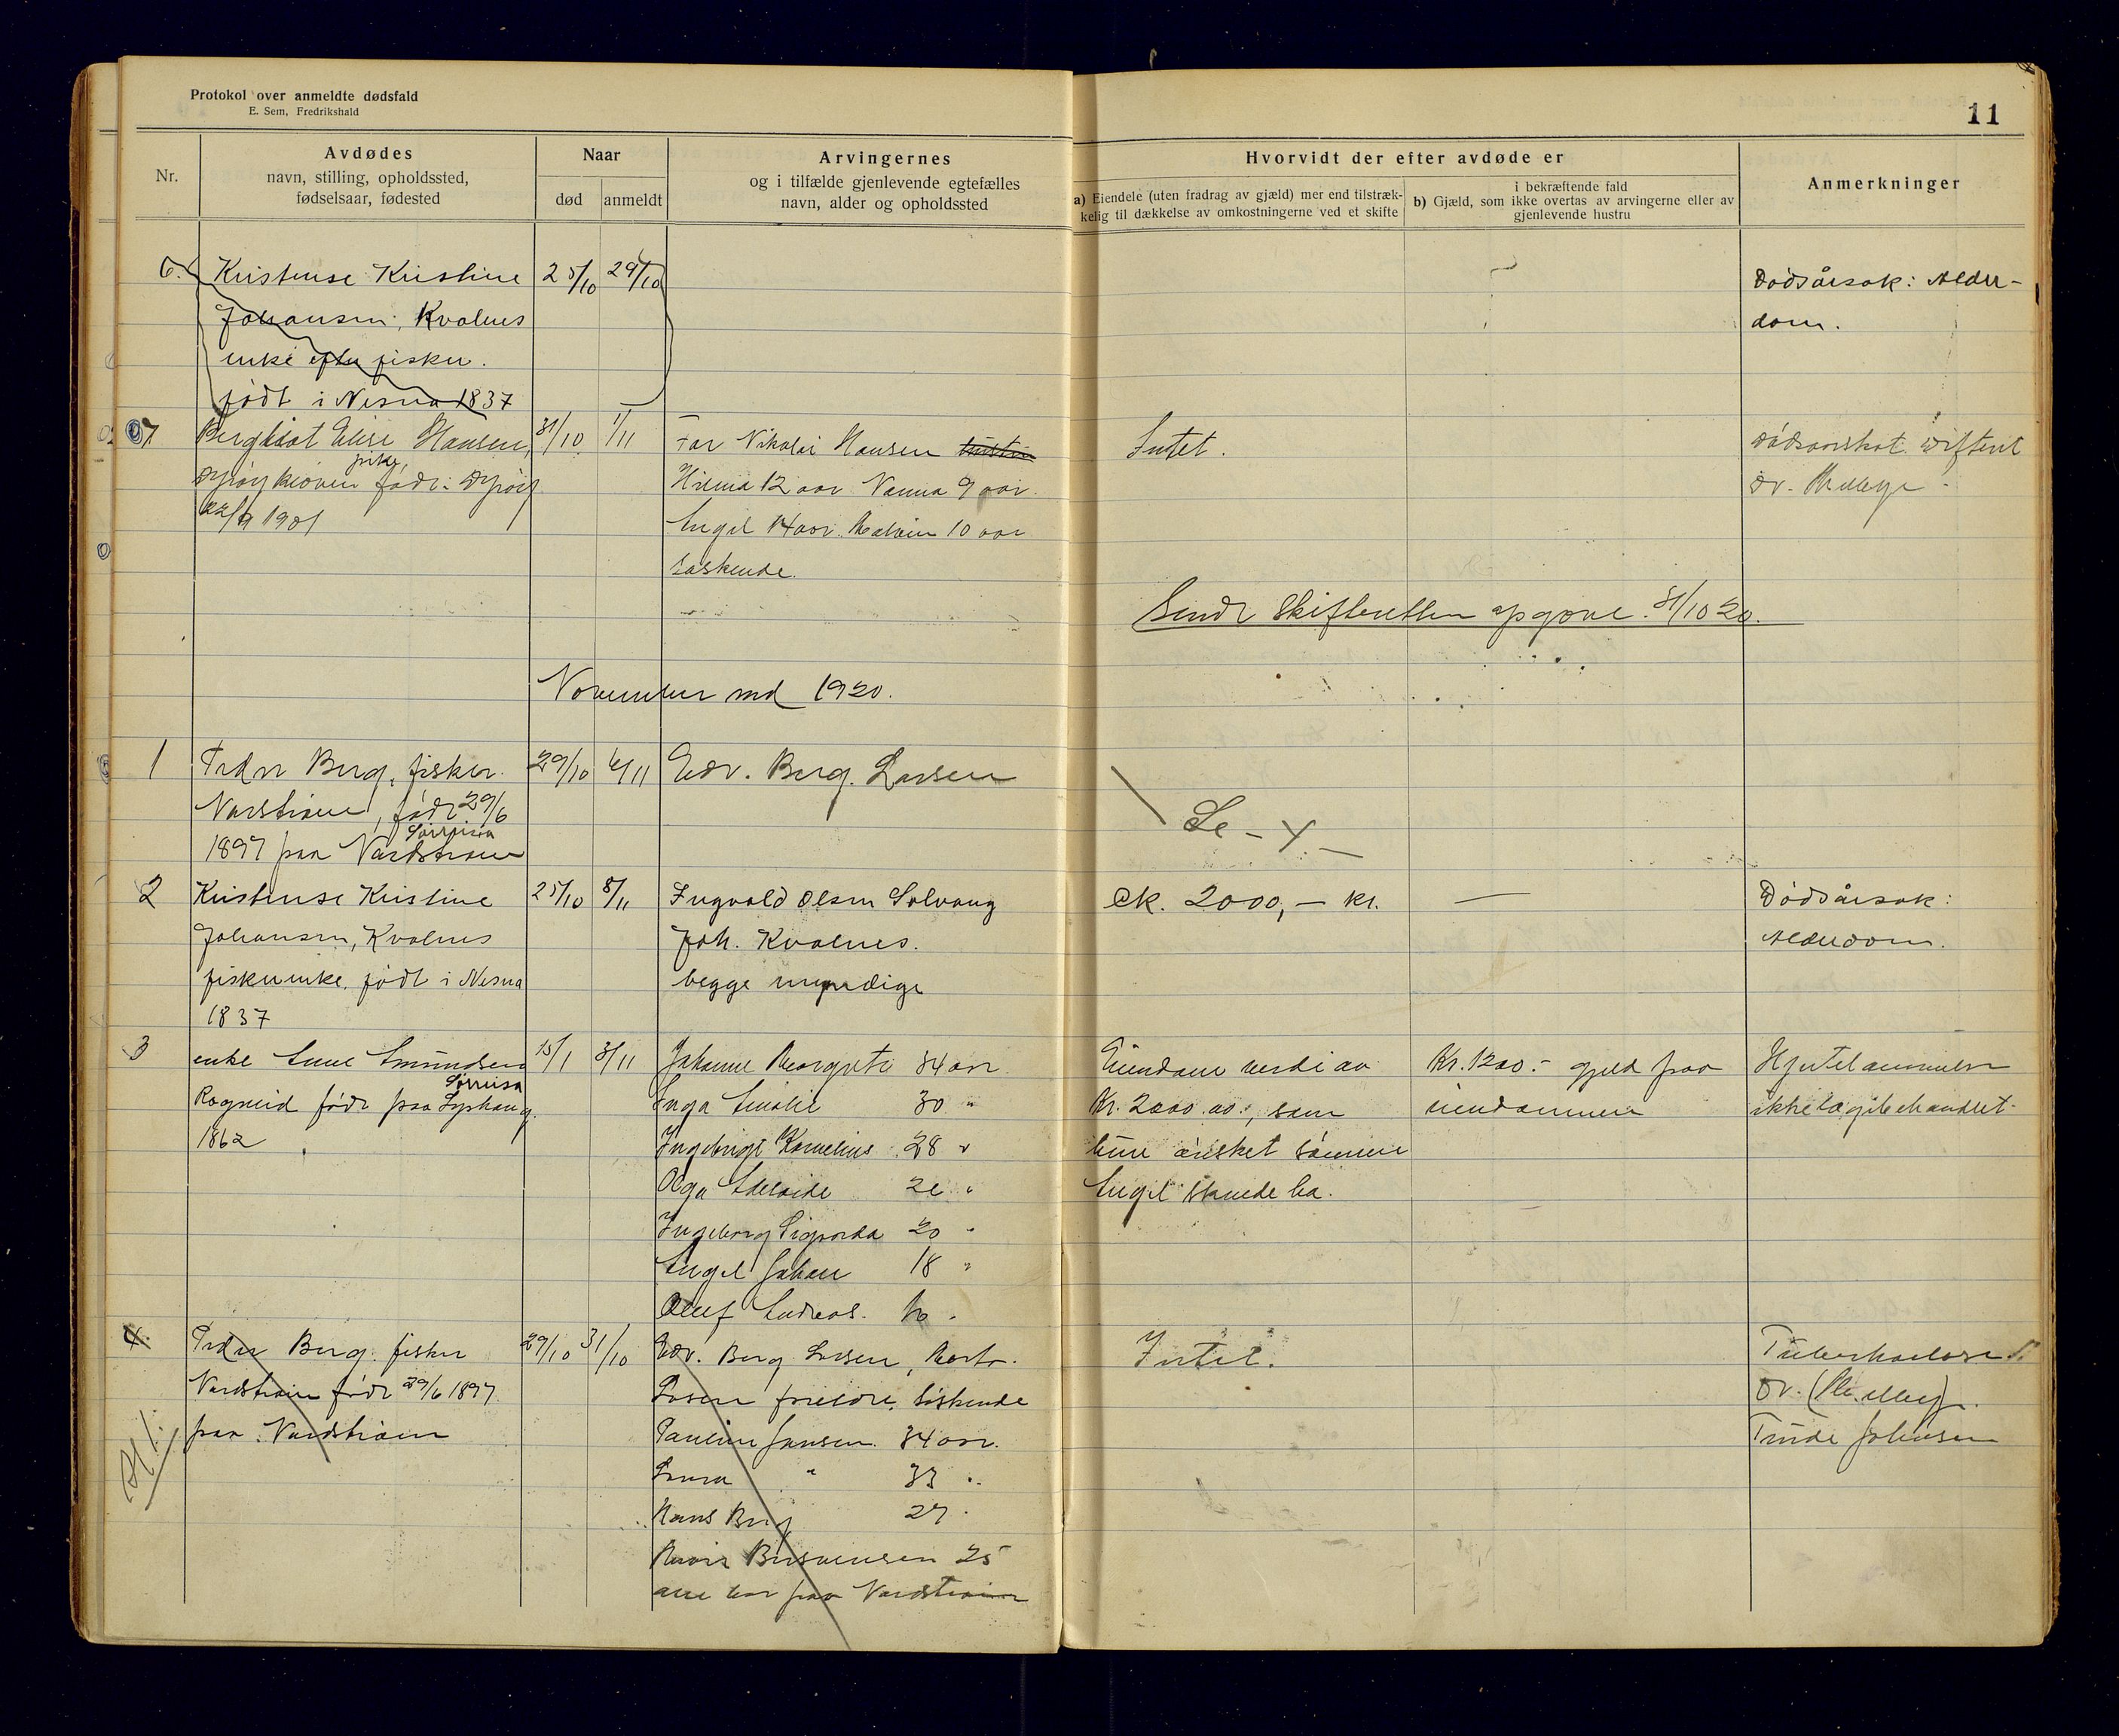 Protokol over anmeldte dødsfald
E. Sem, Fredrikshald
11
Nr.
Avdødes
navn, stilling, opholdssted,
fødselsaar, fødested
Naar
død
anmeldt
Arvingernes
og i tilfælde gjenlevende egtefælles
navn, alder og opholdssted
Hvorvidt der efter avdøde er
a) Eiendele (uten fradrag av gjæld) mer end tilstræk-
kelig til dækkelse av omkostningerne ved et skifte
i bekræftende fald
b) Gjæld, som ikke overtas av arvingerne eller av
gjenlevende hustru
Anmerkninger
6. Kristense Kristine
Johansen, Kvalnes
enke efter fisker.
født i Nesna 1837
25/10
29/10
Dødsårsak: Alder-
dom.
7 Bergliot Elise Hansen,
pike,
født: Dyrøy
1901
31/10
1/11
Far Nikolai Hansen
Hilma 12 aar Nanna 9 aar.
Engel 14 aar. 10 aar
søskende.
Intet.
Dødsorsak:
Dr.
Sendt Skifteretten opgave 31/10 20.
November md 1920.
1
Peder Berg, fisker.
født 29/6
Sørreisa
1897 paa
29/10
6/11
Edv. Berg. Larsen
Se - 4. -
2
Kristense Kristine
Johansen, Kvalnes
fiskerenke, født i Nesna
1837
25/10
8/11
Ingvald Olsen Solvang
Joh. Kvalnes.
begge myndige
Ck. 2000,- kr.
—
Dødsårsak:
Alderdom.
3
enke Ane Amundsen
Sørreisa
Rogneid født paa
1862
15/1
3/11
Johanne Margrete 34 aar
Inga Emelie 30 "
Ingebrigt Kornelius 28 "
Olga Adelaide "
Ingeborg Sigvarda 20 "
Engel Johan 18 "
Oluf Andreas. 16 "
Eiendom verdi av
Kr. 2000.00., som
hun ønsket sønnen
Engel skulde ha.
Kr. 1200.- gjeld paa
eiendommen
ikke lægebehandlet.
4.
Peder Berg. fisker
født 29/6 1897.
paa
29/10
31/10
Edv. Berg Larsen,
Larsen forældre, søskende
Pauline Jansen. 34 aar.
Laura " 33 "
Hans Berg 27 "
25
alle bor paa
Intet.
Tuberkulose
Dr.
Johnsen